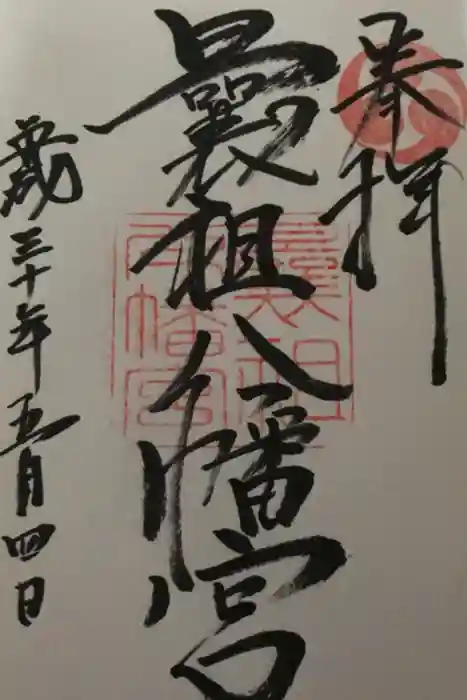 奉拝
曩祖八幡宮
平成三十年五月四日
曩祖
八幡宮